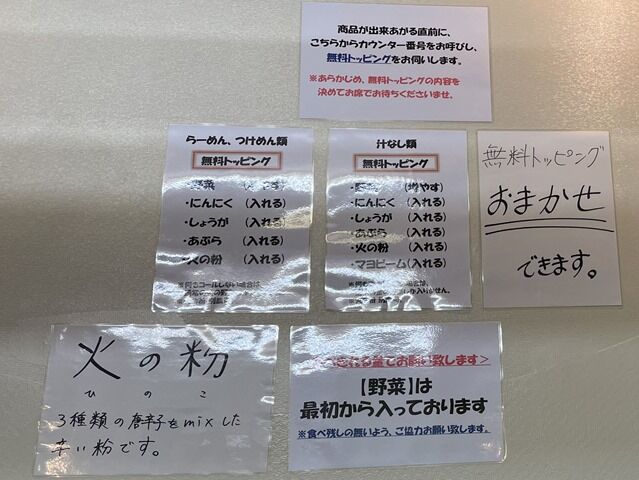 商品が出来あがる直前に、
こちらからカウンター番号をお呼びし、
無料トッピングをお伺いします。
※あらかじめ、無料トッピングの内容を
決めてお席でお待ちくださいませ。
らーめん、つけめん類
無料トッピング
・野菜
・にんにく (入れる)
・しょうが (入れる)
・あぶら (入れる)
・火の粉 (入れる)
※何もコールしない場合は
汁なし類
無料トッピング
・野菜 (増やす)
・にんにく (入れる)
・しょうが (入れる)
・あぶら (入れる)
・火の粉 (入れる)
・マヨビーム(入れる)
無料トッピング
おまかせ
できます。
火の粉
ひのこ
3種類の唐辛子をmixした
辛い粉です。
食べ切れる量でお願い致します>
【野菜】は
最初から入っております
※食べ残しの無いよう、ご協力お願い致します。